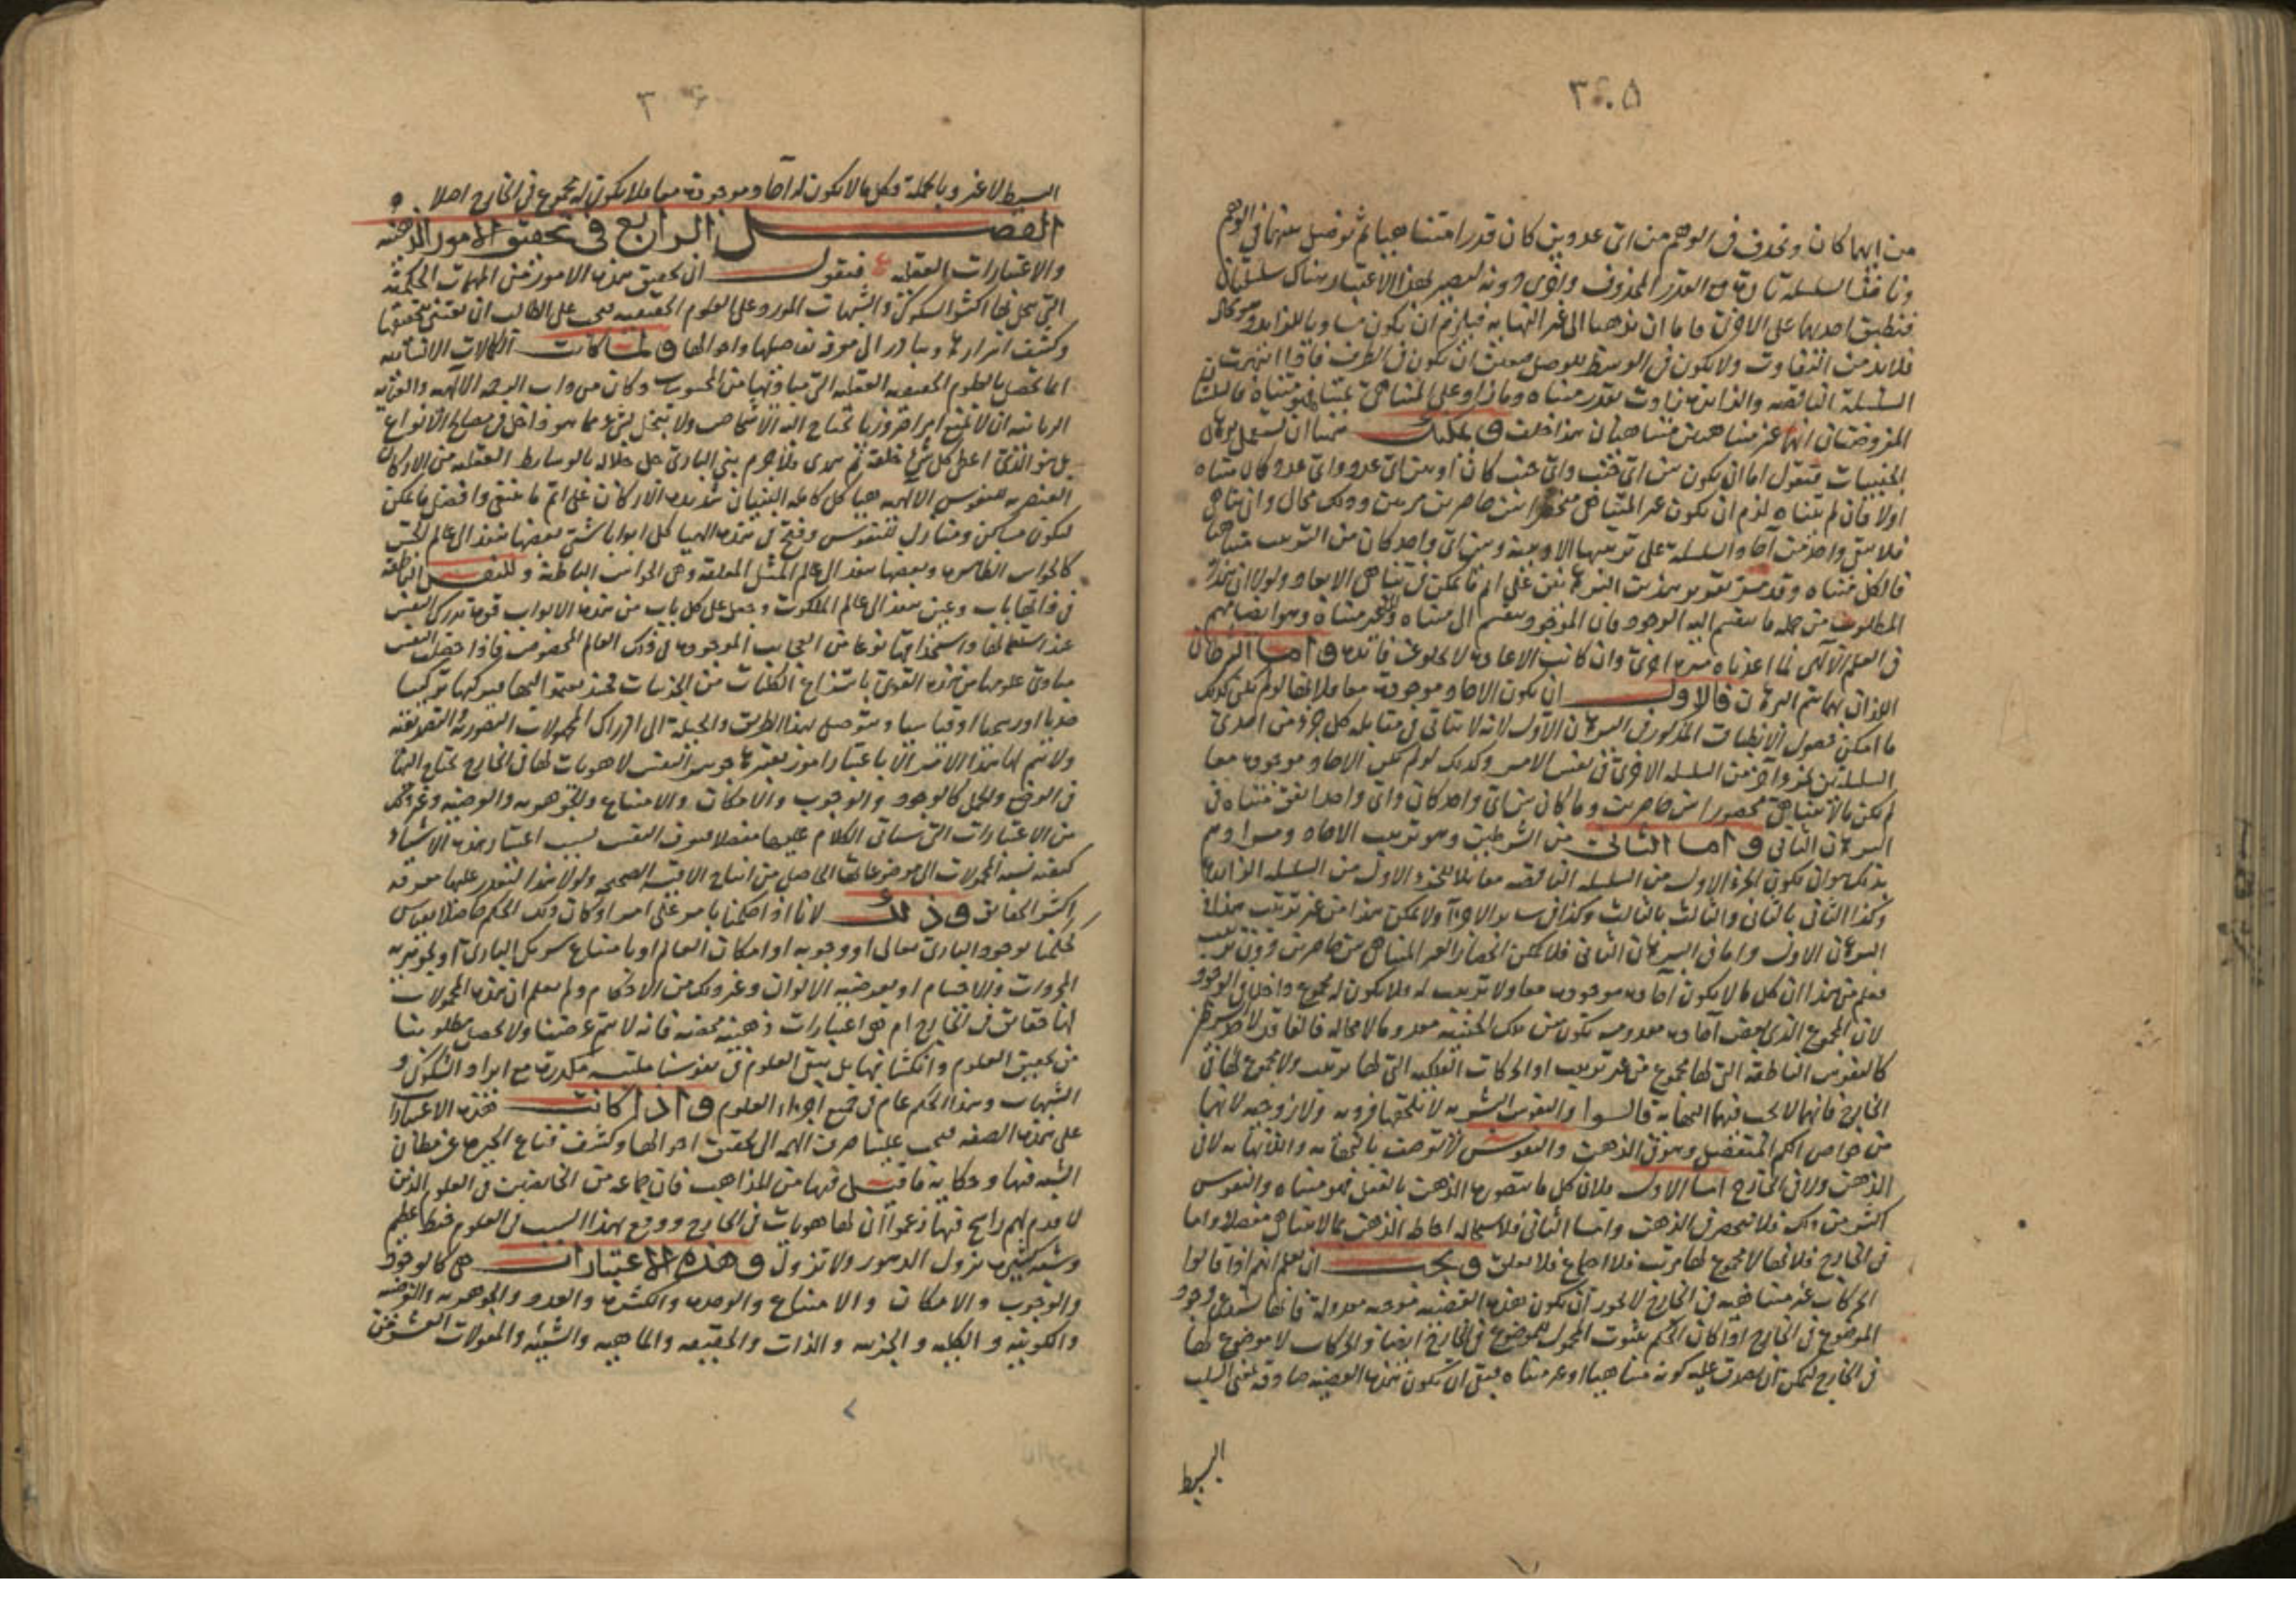 ٣٠٥
من ايهما كان ونحذف في الوهم من اي عددين كان قدرا متناهيا ثم نوصل بينهما في الوهم
ونأخذ السلسلة تارة مع القدر المحذوف واخرى دونه ليصير بهذا الاعتبار هناك سلسلتان
فنطبق احديهما على الاخرى فاما ان يذهبا الى غير النهاية فيلزم ان يكون مساويا للزايد وهو محال
فلابد من التفاوت ولا يكون في الوسط للوصل فتعين ان يكون في الطرف فاذا انتهت
السلسلة الناقصة والزايدة زادت بقدر متناه وما زاد على المتناهي بمتناه فهو متناه فالسلسلتان
المفروضتان انهما غير متناهيتين متناهيتان هذا خلف ويمكنك هيهنا ان تستعمل برهان
الحيثيات فتقول اما ان يكون بين اي حيث واي حيث كان او بين اي عدد واي عدد كان متناه
اولا فان لم يتناه لزم ان يكون غير المتناهي منحصرا بين حاصرين مرتبين وذلك محال وان تناهى
فلا يبقى واحد من آحاد السلسلة على ترتيبها الا وبينه وبين اي واحد كان من الترتيب متناهيا
فالكل متناه وقد مر تقرير هذين البرهانين على اتم ما يمكن في تناهي الابعاد ولولا ان هذا
المطلوب من جملة ما ينقسم اليه الوجود فان الموجود ينقسم الى متناه والى غير متناه وهو ايضا مهم
في العلم الآلهي لما اعدناه مرة اخرى وان كانت الاعادة لا تخلو عن فائدة واما الشرطان
اللذان بهما يتم البرهان فالاول ان يكون الاحاد موجودة معا فلانها لو لم تكن كذلك
ما امكن حصول الانطباق المذكور في البرهان الاول لانه لا يتاتى في مقابلة كل جزء من احدى
السلسلتين لجزء آخر من السلسلة الاخرى في نفس الامر وكذلك لو لم تكن الاحاد موجودة معا
لم يكن ما لا يتناهى محصورا بين حاصرين وما كان بين اي واحد كان واي واحد اتفق متناه في
البرهان الثاني واما الثاني من الشرطين وهو ترتيب الاحاد ومرادهم
بذلك هو ان يكون الجزء الاول من السلسلة الناقصة مقابلا للجزء الاول من السلسلة الزايدة
وكذا الثاني بالثاني والثالث بالثالث وكذا في ساير الاجزاء ولا يمكن هذا من غير ترتيب هذا في
البرهان الاول واما في البرهان الثاني فلا يمكن انحصار الغير المتناهي بين حاصرين دون ترتيب
فعلم من هذا ان كل ما لا يكون آحاده موجودة معا ولا ترتيب له فلا يكون له مجموع داخل في الوجود
لان المجموع الذي بعض آحاده معدومة يكون من تلك الحيثية معدوما لا محالة
كالنفوس الناطقة التي لها مجموع من غير ترتيب او الحركات الفلكية التي لها ترتيب ولا مجموع لها في
الخارج فانهما لا يجب فيهما النهاية قالوا والنفوس البشرية لا تلحقها فردية ولا زوجية لانهما
من خواص الكم المنفصل وهو في الذهن والنفوس لا توصف بالنهاية واللانهاية لا في
الذهن ولا في الخارج اما الاول فلان كل ما يتصوره الذهن بالفعل فهو متناه والنفوس
اكثر من ذلك فلا تنحصر في الذهن واما الثاني فلاستحالة احاطة الذهن بما لا يتناهى مفصلا واما
في الخارج فلانها لا مجموع لها مرتب فلا اجتماع فلا تعلق ويجب ان يعلم انهم اذا قالوا
الحركات غير متناهية في الخارج لا يجوز ان يكون هذه القضية موجبة معدولة فانها تستدعي وجود
الموضوع في الخارج اذا كان الحكم بثبوت المحمول للموضوع في الخارج ايضا والحركات لا موضوع لها
في الخارج ليمكن ان يصدق عليه كونه متناهيا او غير متناه فبقي ان يكون هذه القضية صادقة بمعنى السلب
البسيط
٣٠
البسيط لا غير وبالجملة فكل ما لا يكون له آحاد موجودة معا فلا يكون له مجموع في الخارج اصلا
الفصل الرابع في تحقيق الامور الذهنية
والاعتبارات العقلية فنقول ان تحقيق هذه الامور من المهمات الحكمية
التي ينحل بها اكثر الشكوك والشبهات المورد على العلوم الحقيقية فيجب على الطالب ان يعتني بتحقيقها
وكشف اسرارها ويبادر الى معرفة تفاصيلها واحوالها ولما كانت الكمالات الانسانية
انما تحصل بالعلوم الحقيقية العقلية التي مباديها من المحسوسات وكان من دأب العناية الآلهية والعزة
الربانية ان لا تمنع امرا ضروريا تحتاج اليه الاشخاص ولا تبخل بشيء مما هو داخل في مصالح الانواع
بل هو الذي اعطى كل شيء خلقه ثم هدى فلا جرم بنى الباري جل جلاله بالوسايط العقلية من الاركان
العنصرية للنفوس الآلهية هياكل كاملة البنيان شديدة الاركان على اتم ما ينبغي وافضل ما يمكن
لتكون مساكن ومنازل للنفوس وفتح في هذه الهياكل ابوابا شتى بعضها ينفذ الى عالم الحس
كالحواس الظاهرة وبعضها ينفذ الى عالم المثل المعلقة وهي الحواس الباطنة وللنفس الناطقة
في ذاتها باب وعين ينفذ الى عالم الملكوت وجعل على كل باب من هذه الابواب قوة تدرك النفس
عند استعمالها واستخدامها نوعا من العجايب الموجودة في ذلك العالم المخصوص فاذا حصلت النفس
مبادي علومها من هذه القوى بانتزاع الكليات من الجزئيات فحينئذ تعمد اليها فتركبها تركيبا
حديا او رسميا او قياسيا وتتوصل بهذا الطريق والحيلة الى ادراك المجهولات التصورية والتصديقية
ولا يتم لها هذا الامر الا باعتبار امور يعتبرها جوهر النفس لا هويات لها في الخارج تحتاج اليها
في الوضع والحمل كالوجود والوجوب والامكان والامتناع والجوهرية والعرضية وغير ذلك
من الاعتبارات التي سيأتي الكلام عليها مفصلا فتعرف النفس بسبب اعتبار هذه الاشياء
كيفية نسبة المحمولات الى موضوعاتها الحاصل من انتاج الاقيسة الصحيحة ولولا هذا لتعذر عليها معرفة
اكثر الحقايق وذلك لانا اذا حكمنا بامر على امر او كان ذلك الحكم حاصلا بقياس
كحكمنا بوجود الباري تعالى او وجوبه او امكان العالم او بامتناع شريك الباري او بجوهرية
المجردات والاجسام او بعرضية الالوان وغير ذلك من الاحكام ولم نعلم ان هذه المحمولات
لها حقايق في الخارج ام هي اعتبارات ذهنية محضة فانه لا يتم غرضنا ولا يحصل مطلوبنا
من تحقيق العلوم وانكشافها بل يبقى العلوم في نفوسنا ملتبسة مكدرة مع ايراد الشكوك و
الشبهات وهذا الحكم عام في جميع اجزاء العلوم واذا كانت هذه الاعتبارات
على هذه الصفة فيجب علينا صرف الهمة الى تحقيق احوالها وكشف قناع الحيرة عن مظان
الشبه فيها وحكاية ما قيل فيها من المذاهب فان جماعة من الخائضين في العلوم الذين
لا قدم لهم راسخ فيها زعموا ان لها هويات في الخارج ووقع بهذا السبب في العلوم خبط عظيم
وشبه كثيرة تزول الدهور ولا تزول وهذه الاعتبارات هي كالوجود
والوجوب والامكان والامتناع والوحدة والكثرة والعدد والجوهرية والعرضية
واللونية والكلية والجزئية والذات والحقيقة والماهية والشيئية والمقولات العشر فمن